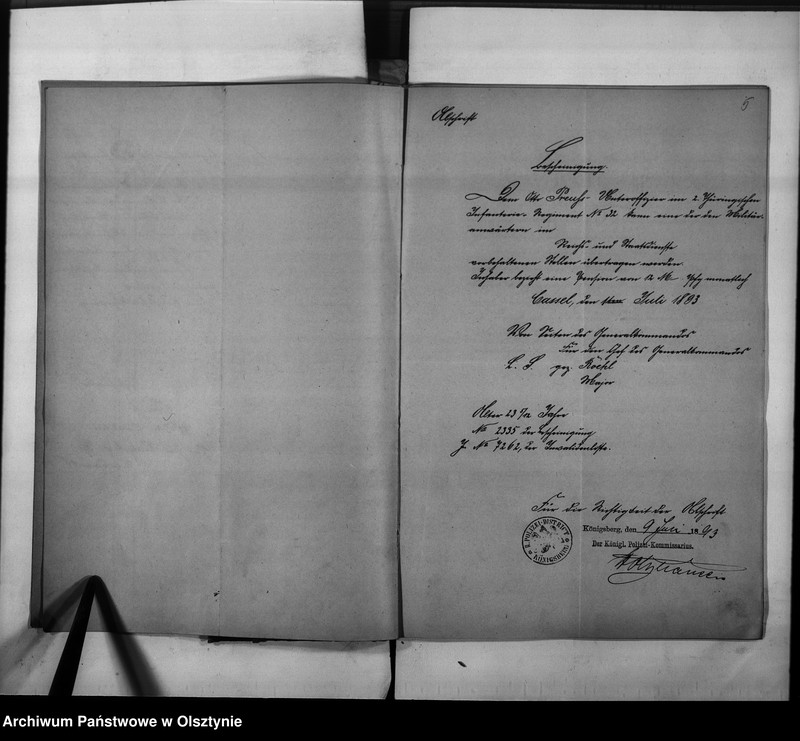 5
Abschrift
Bescheinigung.
Dem Otto Preuss - Unteroffizier im 2. Thüringischen
Infanterie-Regiment No 32 kann eine der den Militär-
anwärtern im
Reichs- und Staatsdienste
vorbehaltenen Stellen übertragen werden.
Inhaber bezieht eine Pension von 12 M. monatlich
Cassel, den Juli 1893
Von Seiten des Generalkommandos
Für den Chef des Generalkommandos
L. S. gez.
Major
Alter 23 1/12 Jahre
No 2335 der Bescheinigung
J. No 7262, der Invalidenliste.
Für die Richtigkeit der Abschrift
Königsberg, den 9 Juli 1893
Der Königl. Polizei-Kommissarius.
POLIZEI-DISTRICT
KÖNIGSBERG
Archiwum Państwowe w Olsztynie